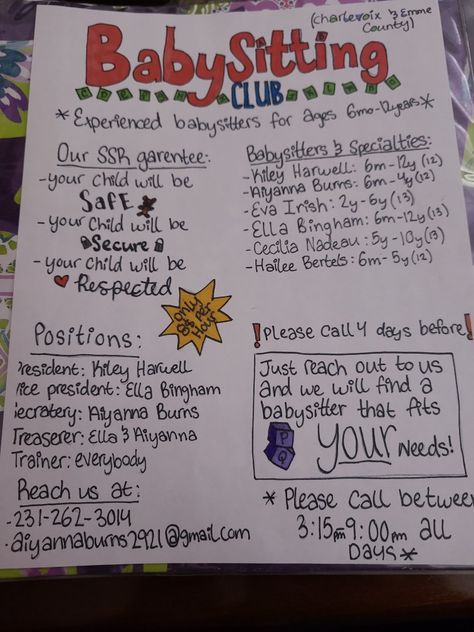 (Charlevoix & Emme County)
BabySitting
CLUB
*Experienced babysitters for ages 6mo-12years*
Our SSR garentee:
-your child will be
Safe
-your child will be
Secure
-your child will be
Respected
Babysitters & Specialties:
-Kiley Harwell: 6m-12y (12)
-Aiyanna Burns: 6m-4y (12)
-Eva Irish: 2y-6y (13)
-Ella Bingham: 6m-12y (13)
-Cecilia Nadeau: 5y-10y (13)
-Hailee Bertels: 6m-5y (12)
Only
Per
Hour
Positions:
resident: Kiley Harwell
ice president: Ella Bingham
ecratery: Aiyanna Burns
Treaserer: Ella & Aiyanna
Trainer: everybody
Reach us at:
-231-262-3014
-aiyannaburns2921@gmail.com
!Please call 4 days before!
Just reach out to us
and we will find a
babysitter that fits
YOUR needs!
P
Q
* Please call betwee
3:15pm 9:00pm all
Days*